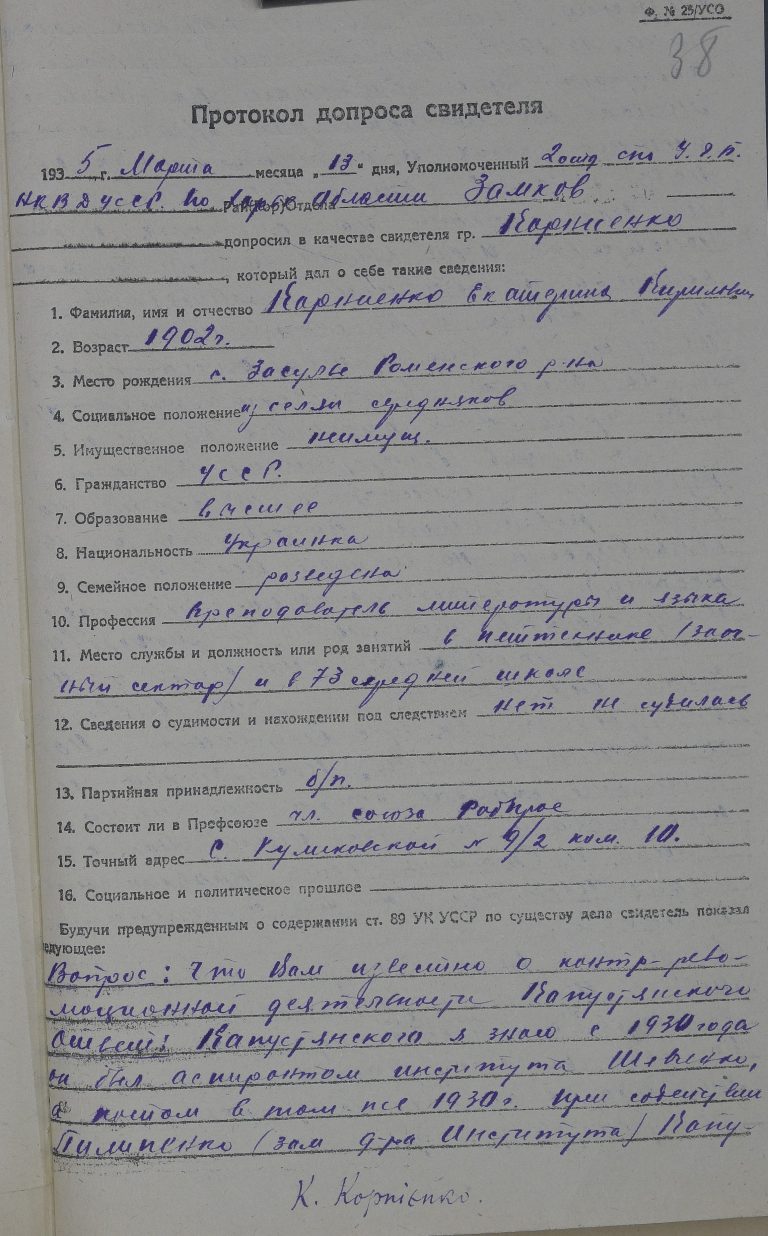 Ф. № 25/УСО
38
Протокол допроса свидетеля
1935 г. Марта месяца „13“ дня, Уполномоченный 2 отд СПО У.Г.Б.
НКВД УССР. по Харьк Области Замков
Рай(Гор)Отдела
допросил в качестве свидетеля гр. Карпиенко
, который дал о себе такие сведения:
1. Фамилия, имя и отчество Карпиенко Екатерина Кириловн
2. Возраст 1902 г.
3. Место рождения с. Засулье Роменского р-на
4. Социальное положение из селян середняков
5. Имущественное положение неимущ.
6. Гражданство УССР.
7. Образование высшее
8. Национальность Украинка
9. Семейное положение розведена
10. Профессия Преподователь литературы и языка
11. Место службы и должность или род занятий в пейтехнике (заоч-
ный сектар) и в 73 середней школе
12. Сведения о судимости и нахождении под следствием нет не судилась
13. Партийная принадлежность б/п.
14. Состоит ли в Профсоюзе чл. союза Рабпрос
15. Точный адрес С. Куликовской № 9/2 ком. 10.
16. Социальное и политическое прошлое
Будучи предупрежденным о содержании ст. 89 УК УССР по существу дела свидетель показал
едующее:
Вопрос: Что Вам известно о контр-рево-
люционной деятельности Капустянского
Ответ: Капустянского я знаю с 1930 года
он был аспирантом института Шевченко,
а потом в том же 1930 г. при содействии
Пилипенко (зам д-ра Института) Капу-
К. Корпієнко.